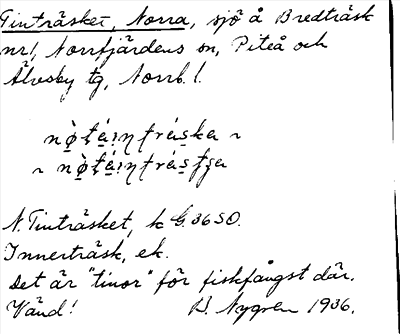 Tinträsket, Norra, sjö å Bredträsk
nr 1, Norrfjärdens sn, Piteå och
Älvsby tg, Norrb. l.
N. Tinträsket, k G. 36 SO.
Innerträsk, ek.
Det är "tinor" för fiskfångst där.
Vänd! H. Nygren 1936.